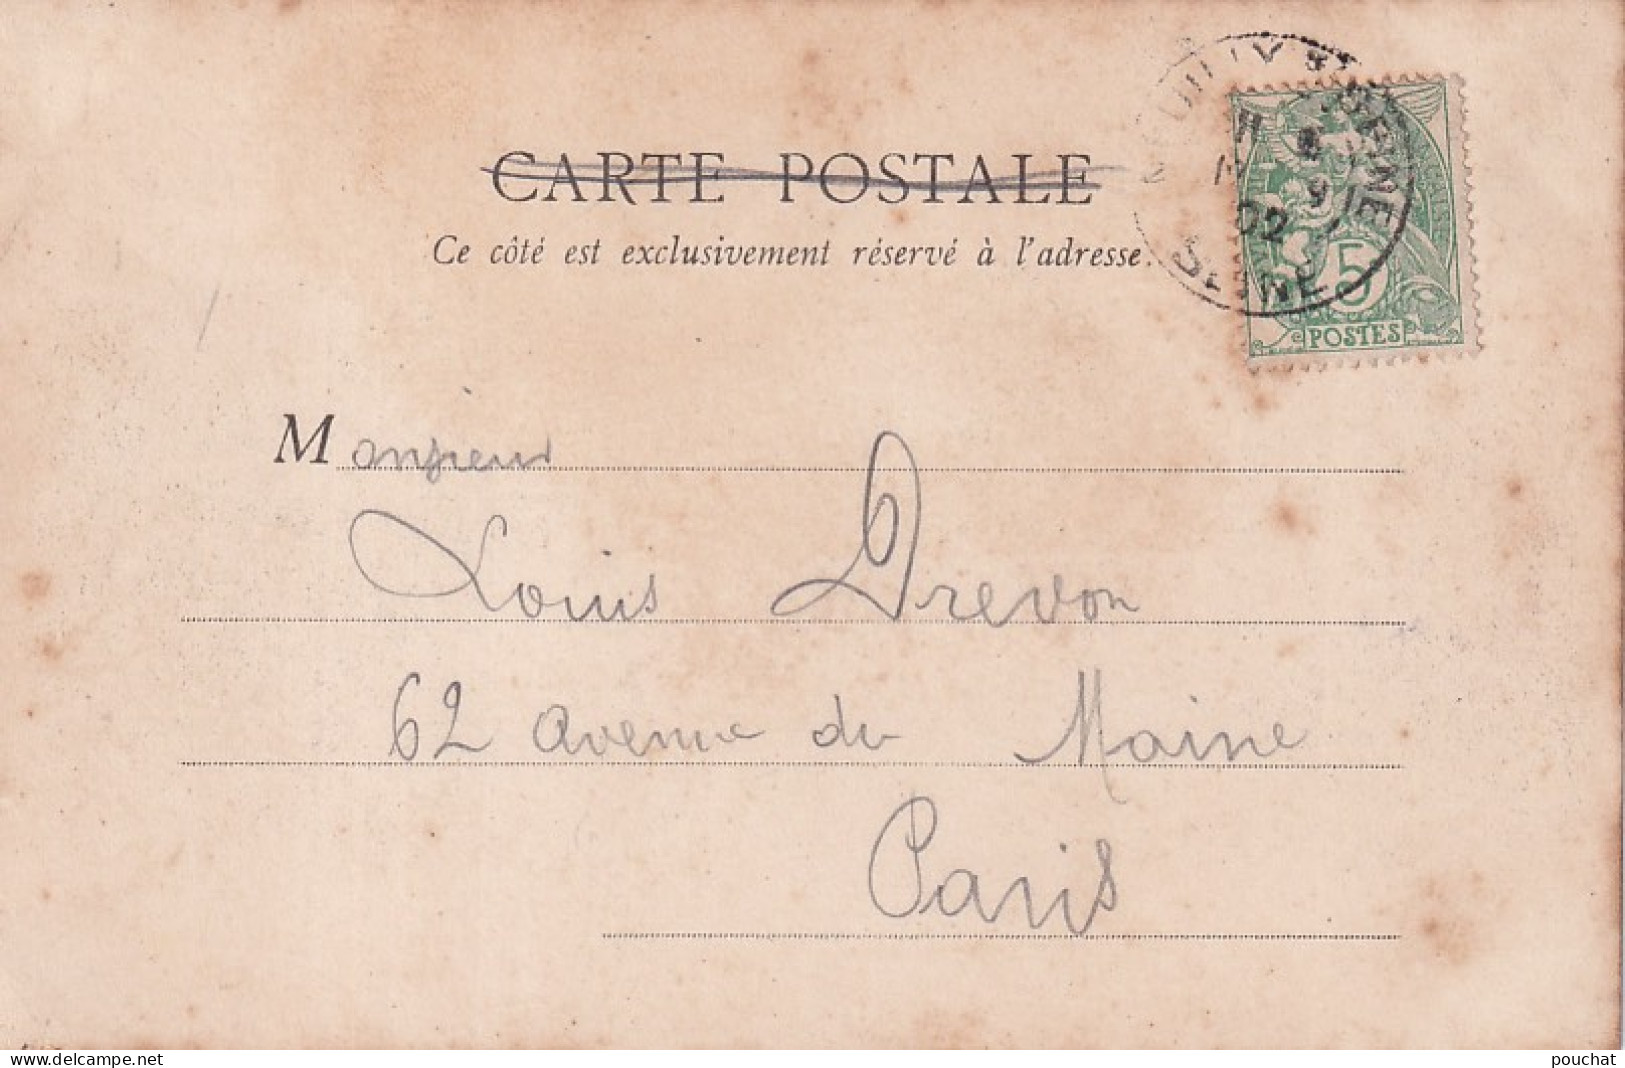 CARTE POSTALE
Ce côté est exclusivement réservé à l'adresse.
SEINE
02
5
POSTES
Monsieur
Louis Drevon
62 avenue du Maine
Paris
delcampe.net
pouchat